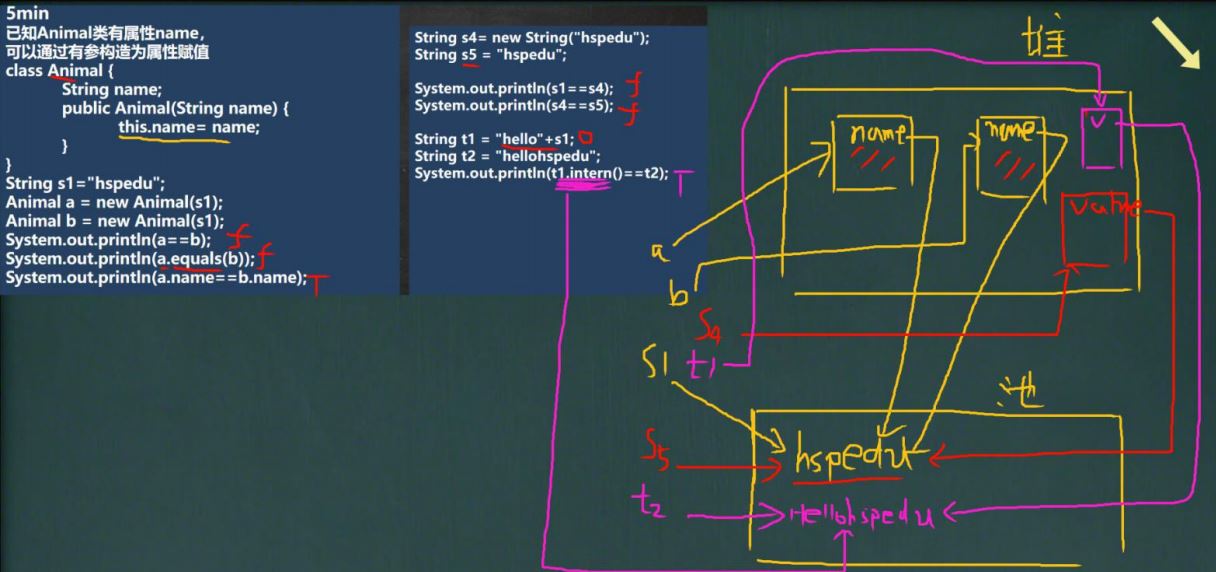 5min
已知Animal类有属性name，
可以通过有参构造为属性赋值
class Animal {
String name;
public Animal(String name) {
this.name= name;
}
}
String s1="hspedu";
Animal a = new Animal(s1);
Animal b = new Animal(s1);
System.out.println(a==b); f
System.out.println(a.equals(b)); f
System.out.println(a.name==b.name); T
String s4= new String("hspedu");
String s5 = "hspedu";
System.out.println(s1==s4); f
System.out.println(s4==s5); f
String t1 = "hello"+s1;
String t2 = "hellohspedu";
System.out.println(t1.intern()==t2); T
堆
name
name
v
value
a
b
S4
S1
t1
池
S5
hspedu
t2
Hellohspedu